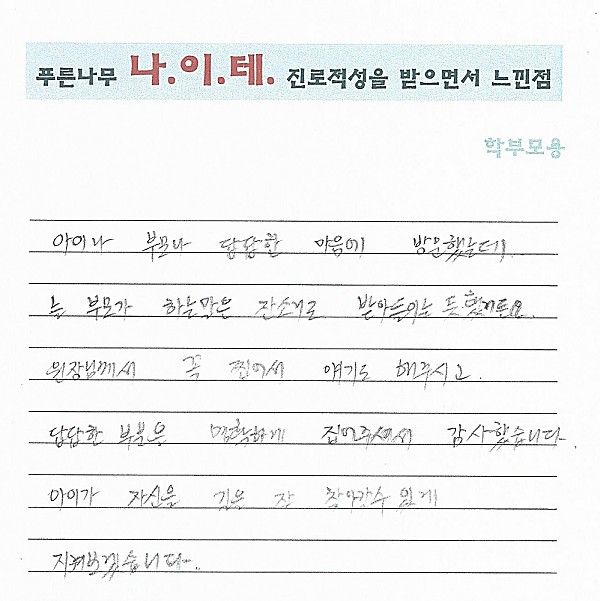 푸른나무 나.이.테. 진로적성을 받으면서 느낀점
학부모용
아이나 부모나 답답한 마음에 방문했는데
늘 부모가 하는말은 잔소리로 받아들이는 듯 했거든요.
원장님께서 꼭 찝어서 얘기도 해주시고.
답답한 부분을 명확하게 집어주셔서 감사했습니다.
아이가 자신을 길을 잘 찾아갈수 있게
지켜보겠습니다.